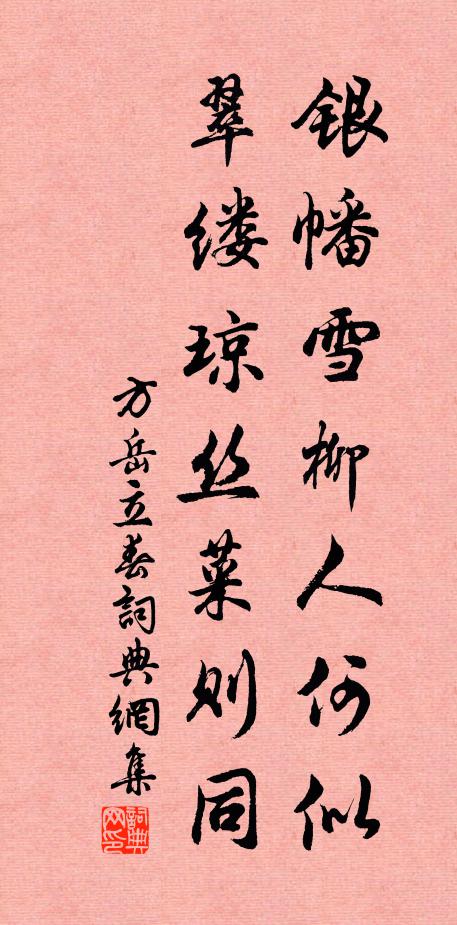 银幡雪柳人何似
翠缕琼丝菜则同
方岳立春詞典網集
詞典网印